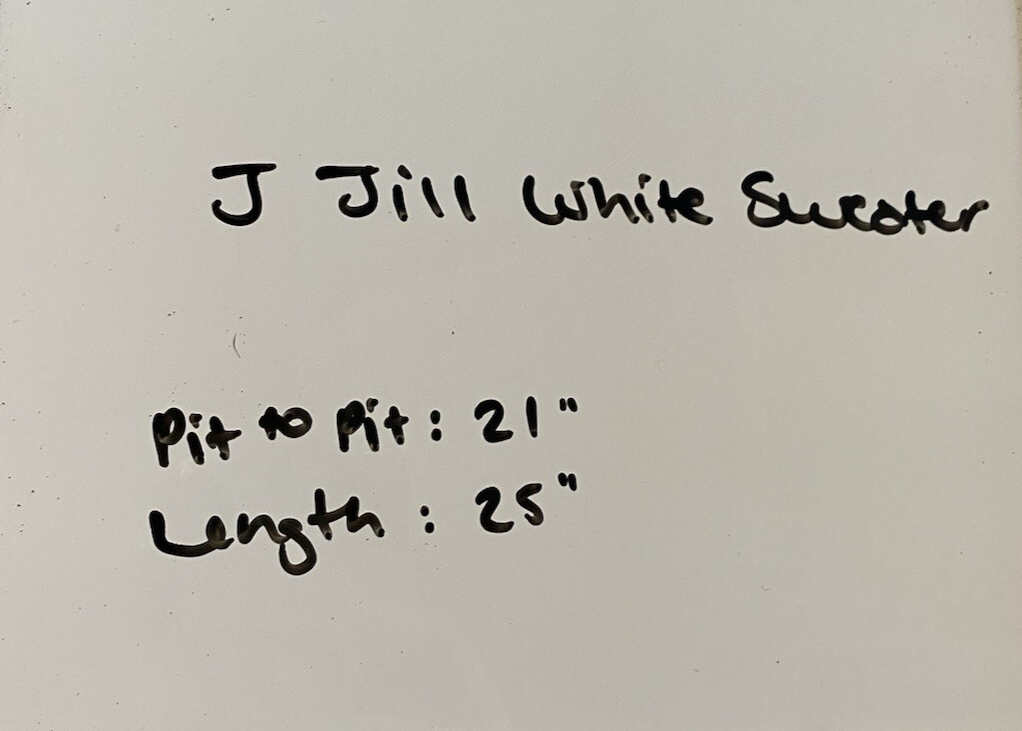 J Jill White Sweater
Pit to Pit: 21"
Length: 25"